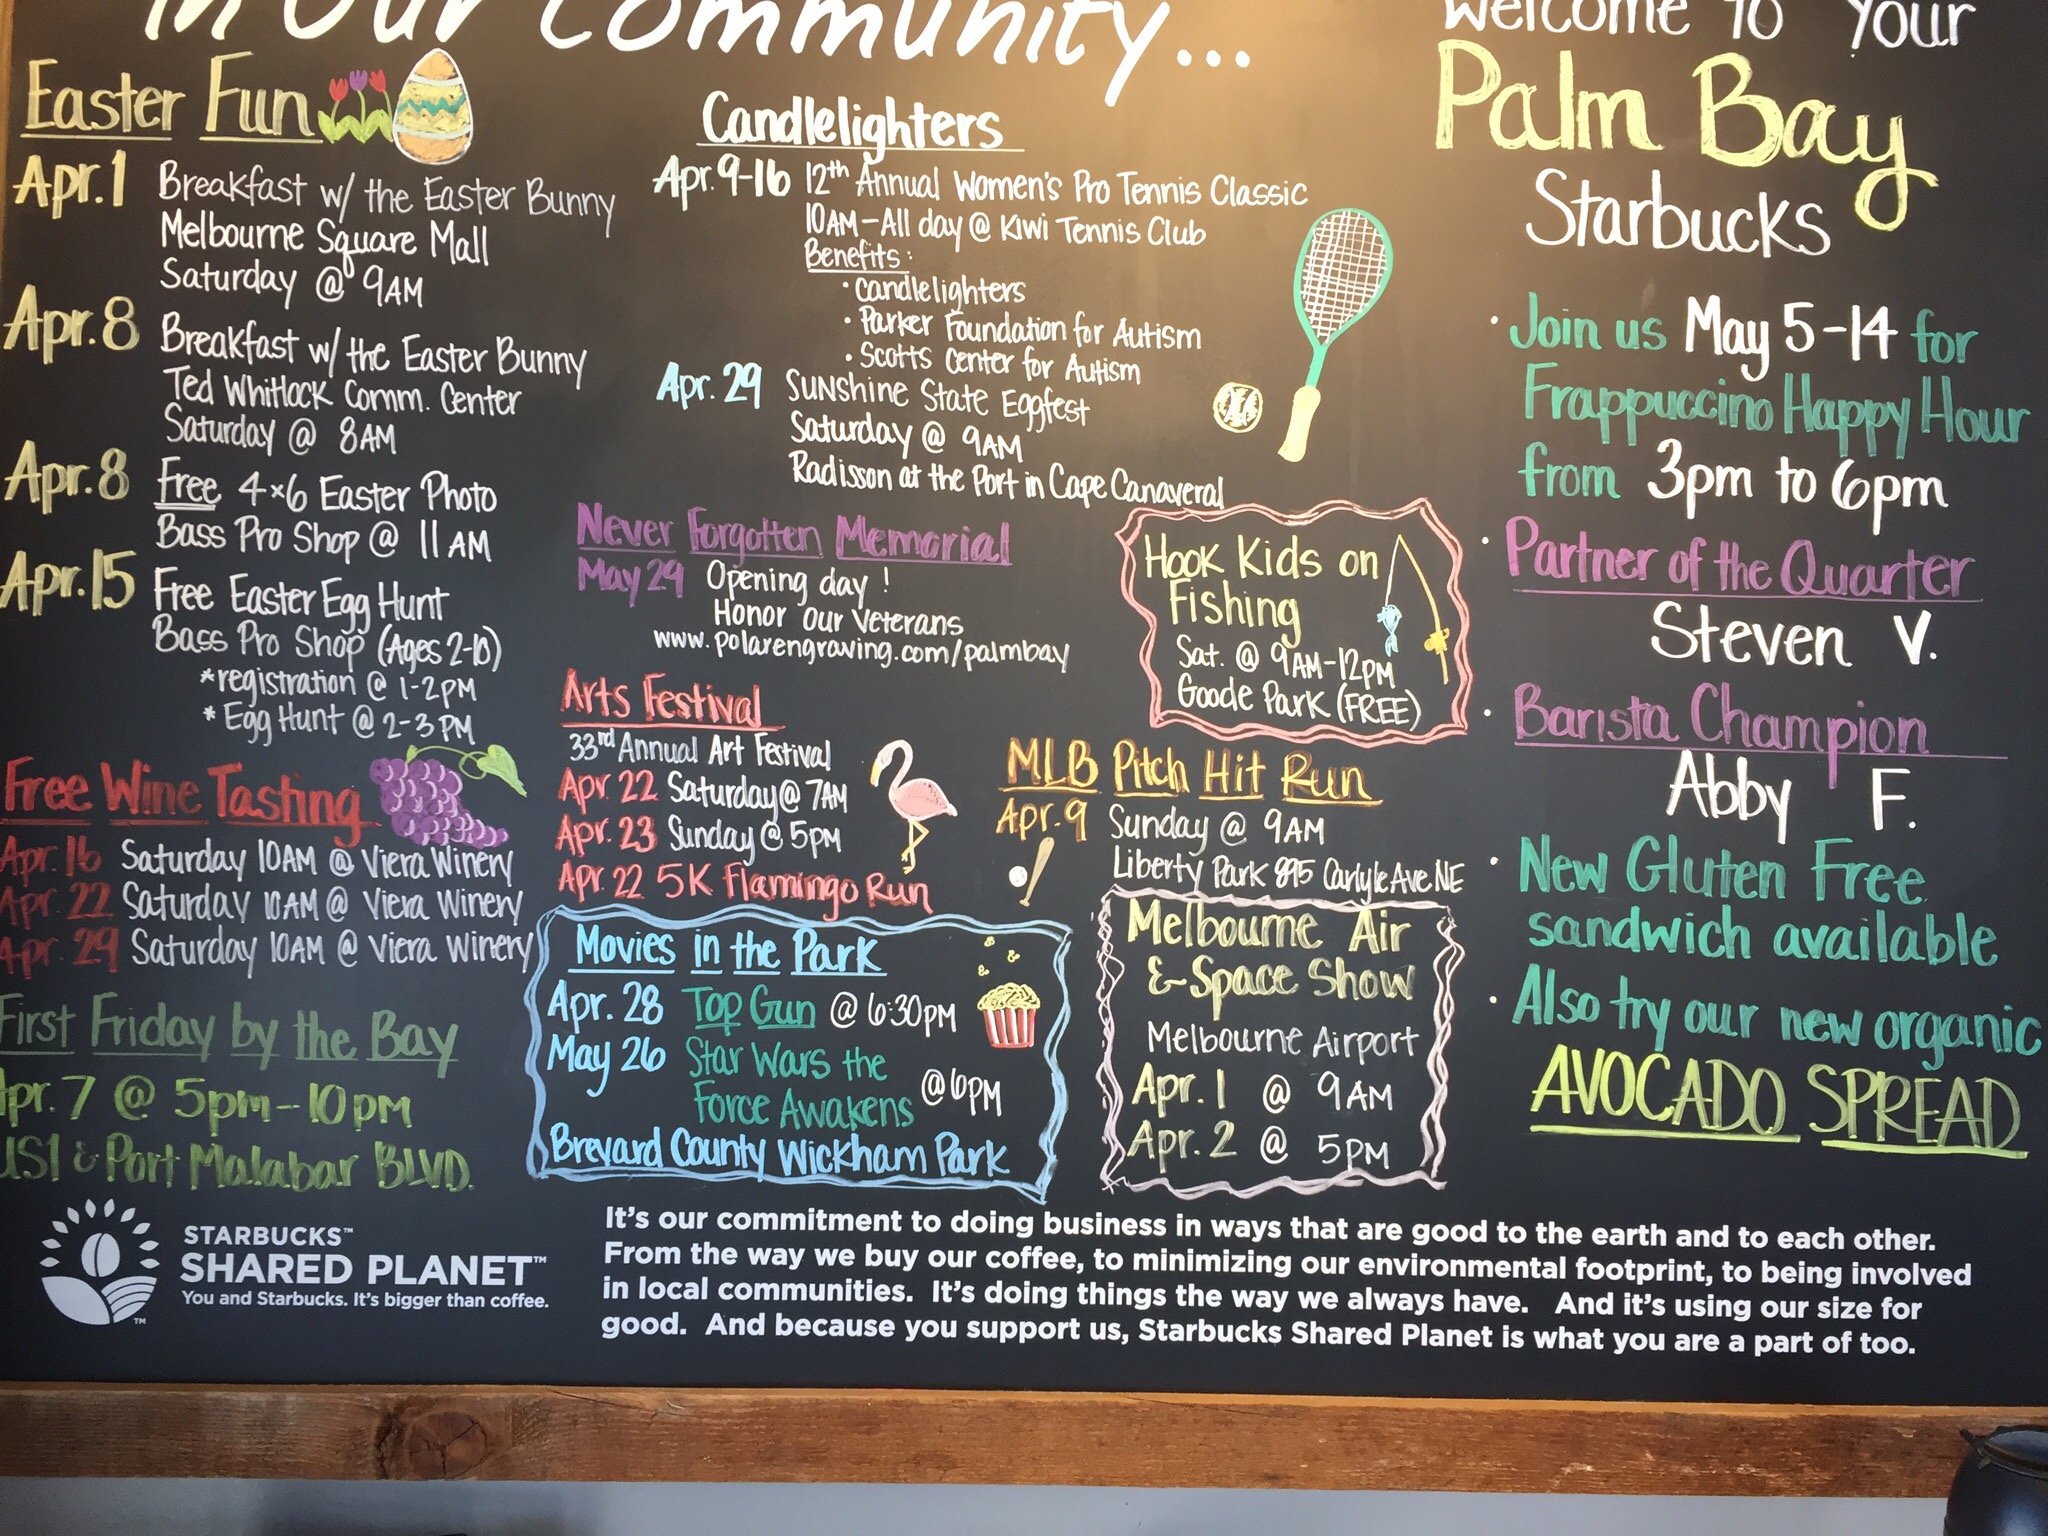 In Our Community...
Easter Fun
Apr. 1 Breakfast w/ the Easter Bunny
Melbourne Square Mall
Saturday @ 9AM
Apr. 8 Breakfast w/ the Easter Bunny
Ted Whitlock Comm. Center
Saturday @ 8AM
Apr. 8 Free 4x6 Easter Photo
Bass Pro Shop @ 11AM
Apr. 15 Free Easter Egg Hunt
Bass Pro Shop (Ages 2-10)
*registration @ 1-2PM
*Egg Hunt @ 2-3PM
Free Wine Tasting
Apr. 16 Saturday 10AM @ Viera Winery
Apr. 22 Saturday 10AM @ Viera Winery
Apr. 29 Saturday 10AM @ Viera Winery
First Friday by the Bay
Apr. 7 @ 5pm-10pm
US1 & Port Malabar BLVD.
Candlelighters
Apr. 9-16 12th Annual Women's Pro Tennis Classic
10AM-All day @ Kiwi Tennis Club
Benefits:
• Candlelighters
• Parker Foundation for Autism
• Scotts Center for Autism
Apr. 29 Sunshine State Eggfest
Saturday @ 9AM
Radisson at the Port in Cape Canaveral
Never Forgotten Memorial
May 29 Opening day!
Honor Our Veterans
www.polarengraving.com/palmbay
Hook Kids on
Fishing
Sat. @ 9AM-12PM
Goode Park (FREE)
Arts Festival
33rd Annual Art Festival
Apr 22 Saturday @ 7AM
Apr. 23 Sunday @ 5PM
Apr. 22 5K Flamingo Run
MLB Pitch Hit Run
Apr. 9 Sunday @ 9AM
Liberty Park 895 Carlyle Ave NE
Movies in the Park
Apr. 28 Top Gun @ 6:30PM
May 26 Star Wars the
Force Awakens @ 6PM
Brevard County Wickham Park
Melbourne Air
& Space Show
Melbourne Airport
Apr. 1 @ 9AM
Apr. 2 @ 5PM
Welcome To Your
Palm Bay
Starbucks
• Join us May 5-14 for
Frappuccino Happy Hour
from 3pm to 6pm
• Partner of the Quarter
Steven V.
• Barista Champion
Abby F.
• New Gluten Free
sandwich available
• Also try our new organic
AVOCADO SPREAD
STARBUCKS™
SHARED PLANET™
You and Starbucks. It's bigger than coffee.
It's our commitment to doing business in ways that are good to the earth and to each other.
From the way we buy our coffee, to minimizing our environmental footprint, to being involved
in local communities. It's doing things the way we always have. And it's using our size for
good. And because you support us, Starbucks Shared Planet is what you are a part of too.